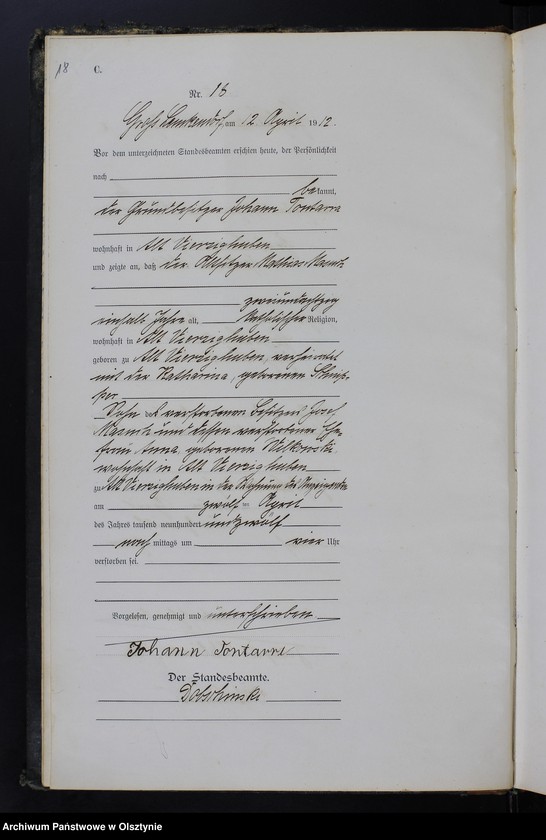 18
C.
Nr. 18
am 12 April 1912.
Vor dem unterzeichneten Standesbeamten erschien heute, der Persönlichkeit
nach
bekannt,
der Grundbesitzer Johann Tontarra
wohnhaft in Alt Vierzighuben
und zeigte an, daß der Altsitzer Mathias
zweiundachtzig
einhalb Jahre alt, katholischer Religion,
wohnhaft in Alt Vierzighuben
geboren zu Alt Vierzighuben, verheiratet
mit der Katharina, geborenen
Sohn des verstorbenen Besitzers Josef
und dessen verstorbener Ehe-
frau Anna, geborenen
wohnhaft in Alt Vierzighuben
zu Alt Vierzighuben in der Wohnung des Anzeigenden
am zwölften April
des Jahres tausend neunhundert und zwölf
nachmittags um vier Uhr
verstorben sei.
Vorgelesen, genehmigt und unterschrieben
Johann Tontarra
Der Standesbeamte.
Archiwum Państwowe w Olsztynie